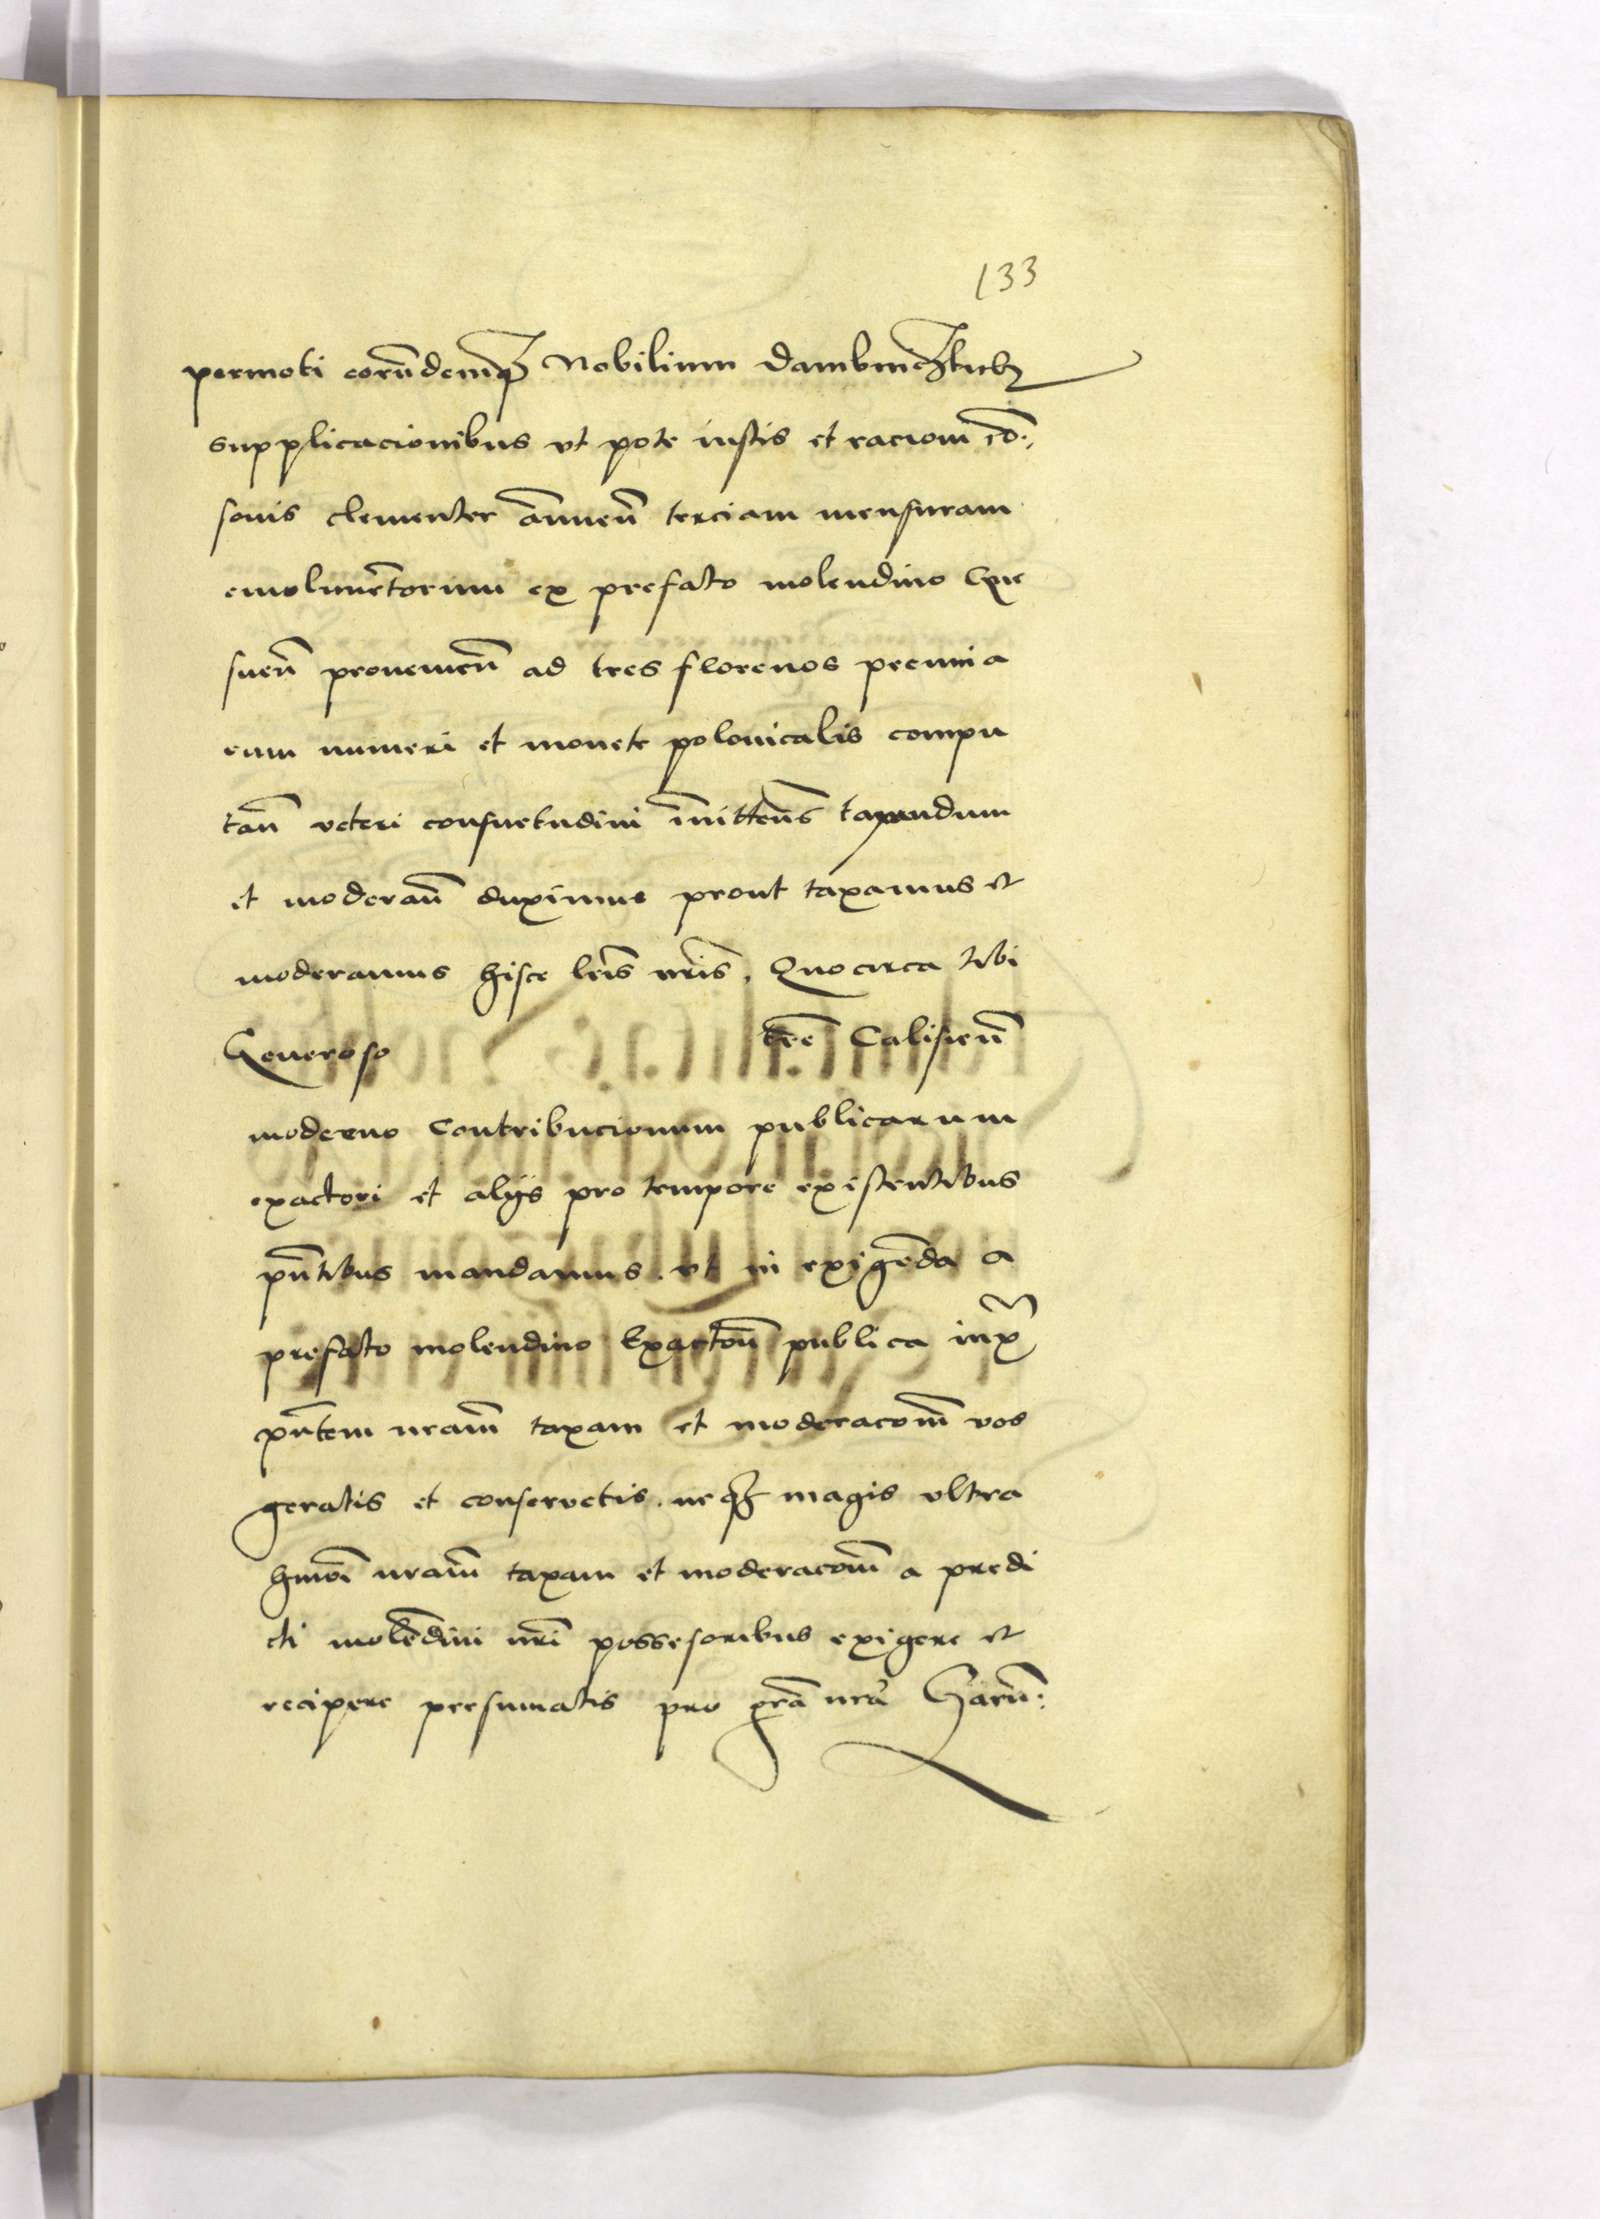 133
permoti eorũdemq₃ Nobilium
supplicacionibus vt pote iustis et racioni cõ:
sonis clementer ãnnueñ terciam mensuram
emolumẽtorum ex prefato molendino
sueñ provenieñ ad tres florenos pecunia
rum numeri et monete polonicalis compu
tañ veteri consuetudini ĩnitteñs taxandum
et moderañ duximus prout taxamus et
moderamus hisce lr̃is nr̃is, Quocirca tibi
Generoso tr̃e Calisieñ
moderno Contribucionum publicarum
exactori et alijs pro tempore existentibus
pñtibus mandamus. vt in exigẽda a
prefato molendino Exactoñ publica iux
pñtem nr̃am taxam et moderacom̃ vos
geratis et conservetis. neq₃ magis vltra
hmõi nr̃am taxam et moderacom̃ a predi
cti molẽdini nr̃i possesoribus exigere et
recipere presumatis pro gr̃a nr̃a Harũ: